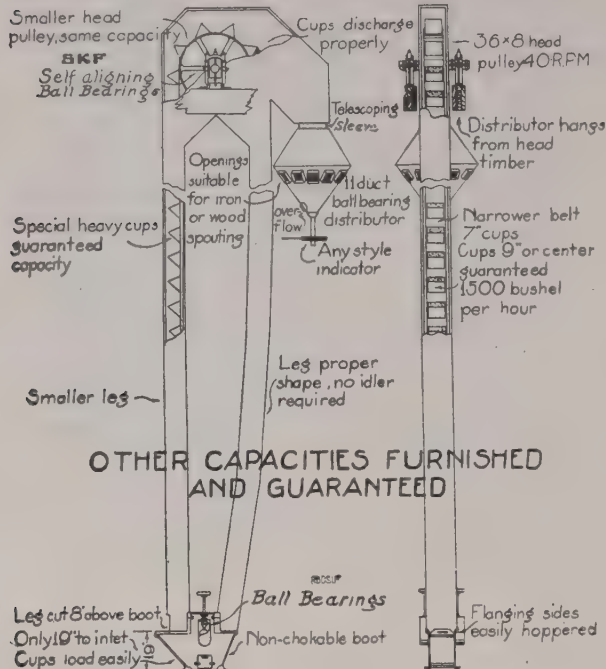 Smaller head
pulley, same capacity
SKF
Self aligning
Ball Bearings
Cups discharge
properly
36×8 head
pulley 40 R.P.M
Telescoping
sleeve
Distributor hangs
from head
timber
Openings
suitable
for iron
or wood
spouting
11 duct
ball bearing
distributor
over-
flow
Any style
indicator
Special heavy cups
guaranteed
capacity
Narrower belt
7" cups
Cups 9" or center
guaranteed
1500 bushel
per hour
Smaller leg
Leg proper
shape, no idler
required
OTHER CAPACITIES FURNISHED
AND GUARANTEED
Ball Bearings
Leg cut 8' above boot
Only 19" to inlet
Cups load easily
19"
Non-chokable boot
Flanging sides
easily hoppered